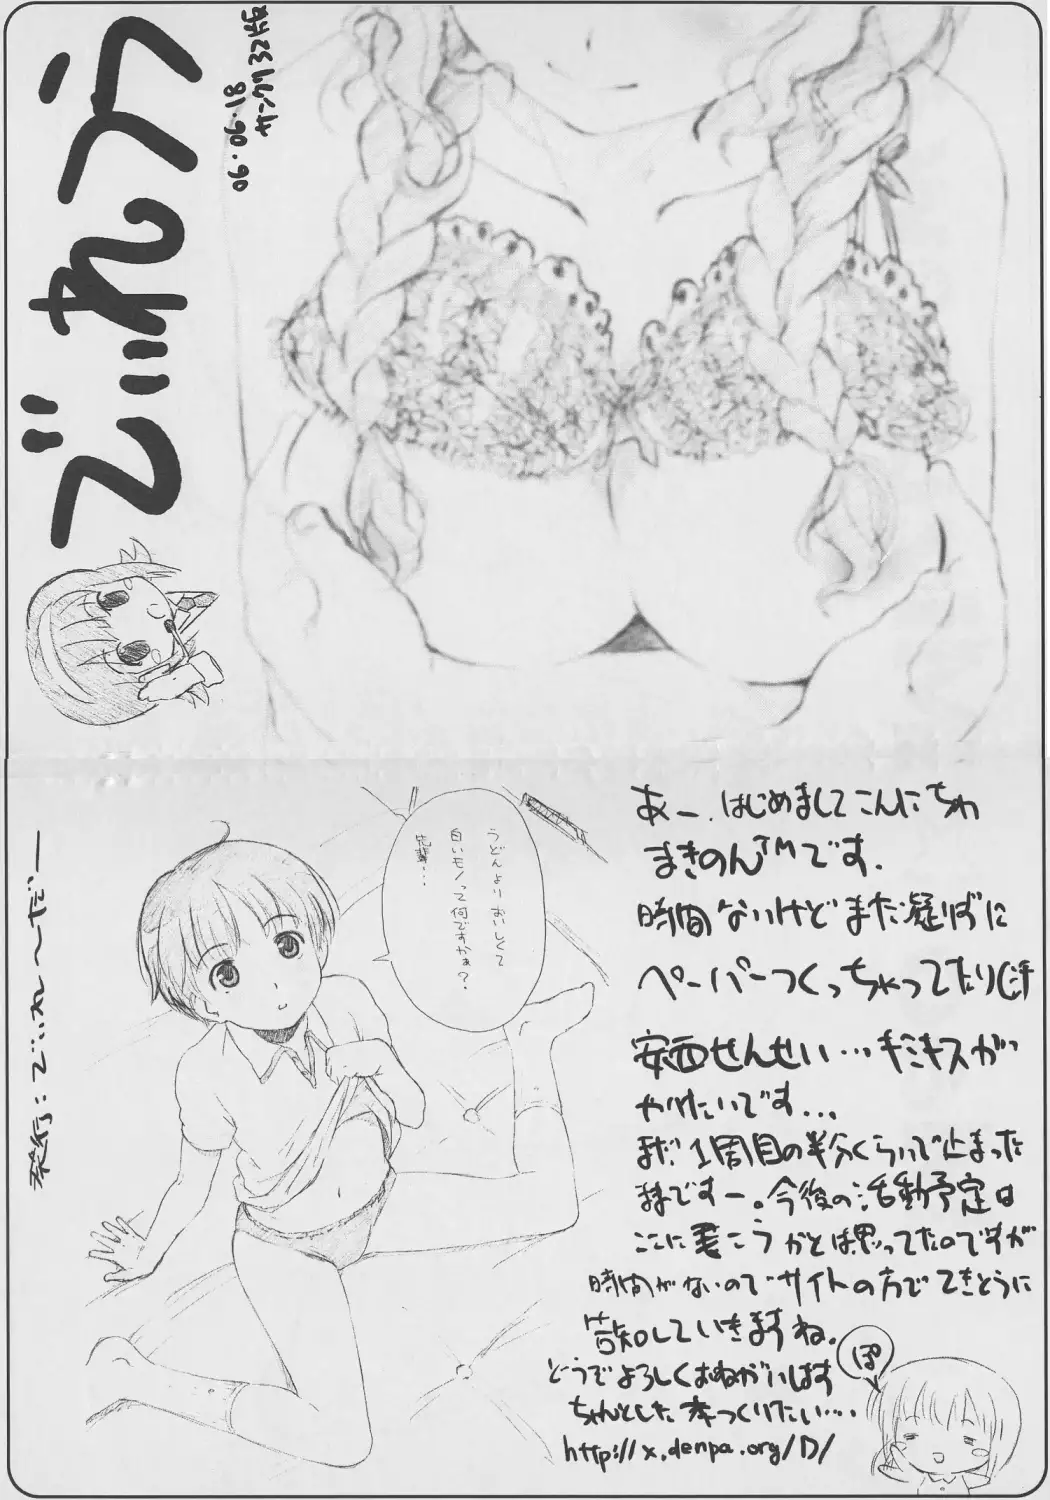 でいれう
06.06.18
サンクリ32版
うどんより おいしくて
白いモノって何ですかぁ?
先輩...
あー、はじめましてこんにちわ
まきのん™です.
時間ないけどまた凝りずに
ペーパーつくっちゃってたり(汗
安西せんせい...キミキスが
やりたいです...
まだ1周目の半分くらいで止まった
ままですー。今後の活動予定は
ここに書こうかとは思ってたのですが
時間がないのでサイトの方でてきとうに
告知していきますね.
どうぞよろしくおねがいします
ちゃんとした本つくりたい....
http://x.denpa.org/D/
ぽ
発行:でいれ〜だー